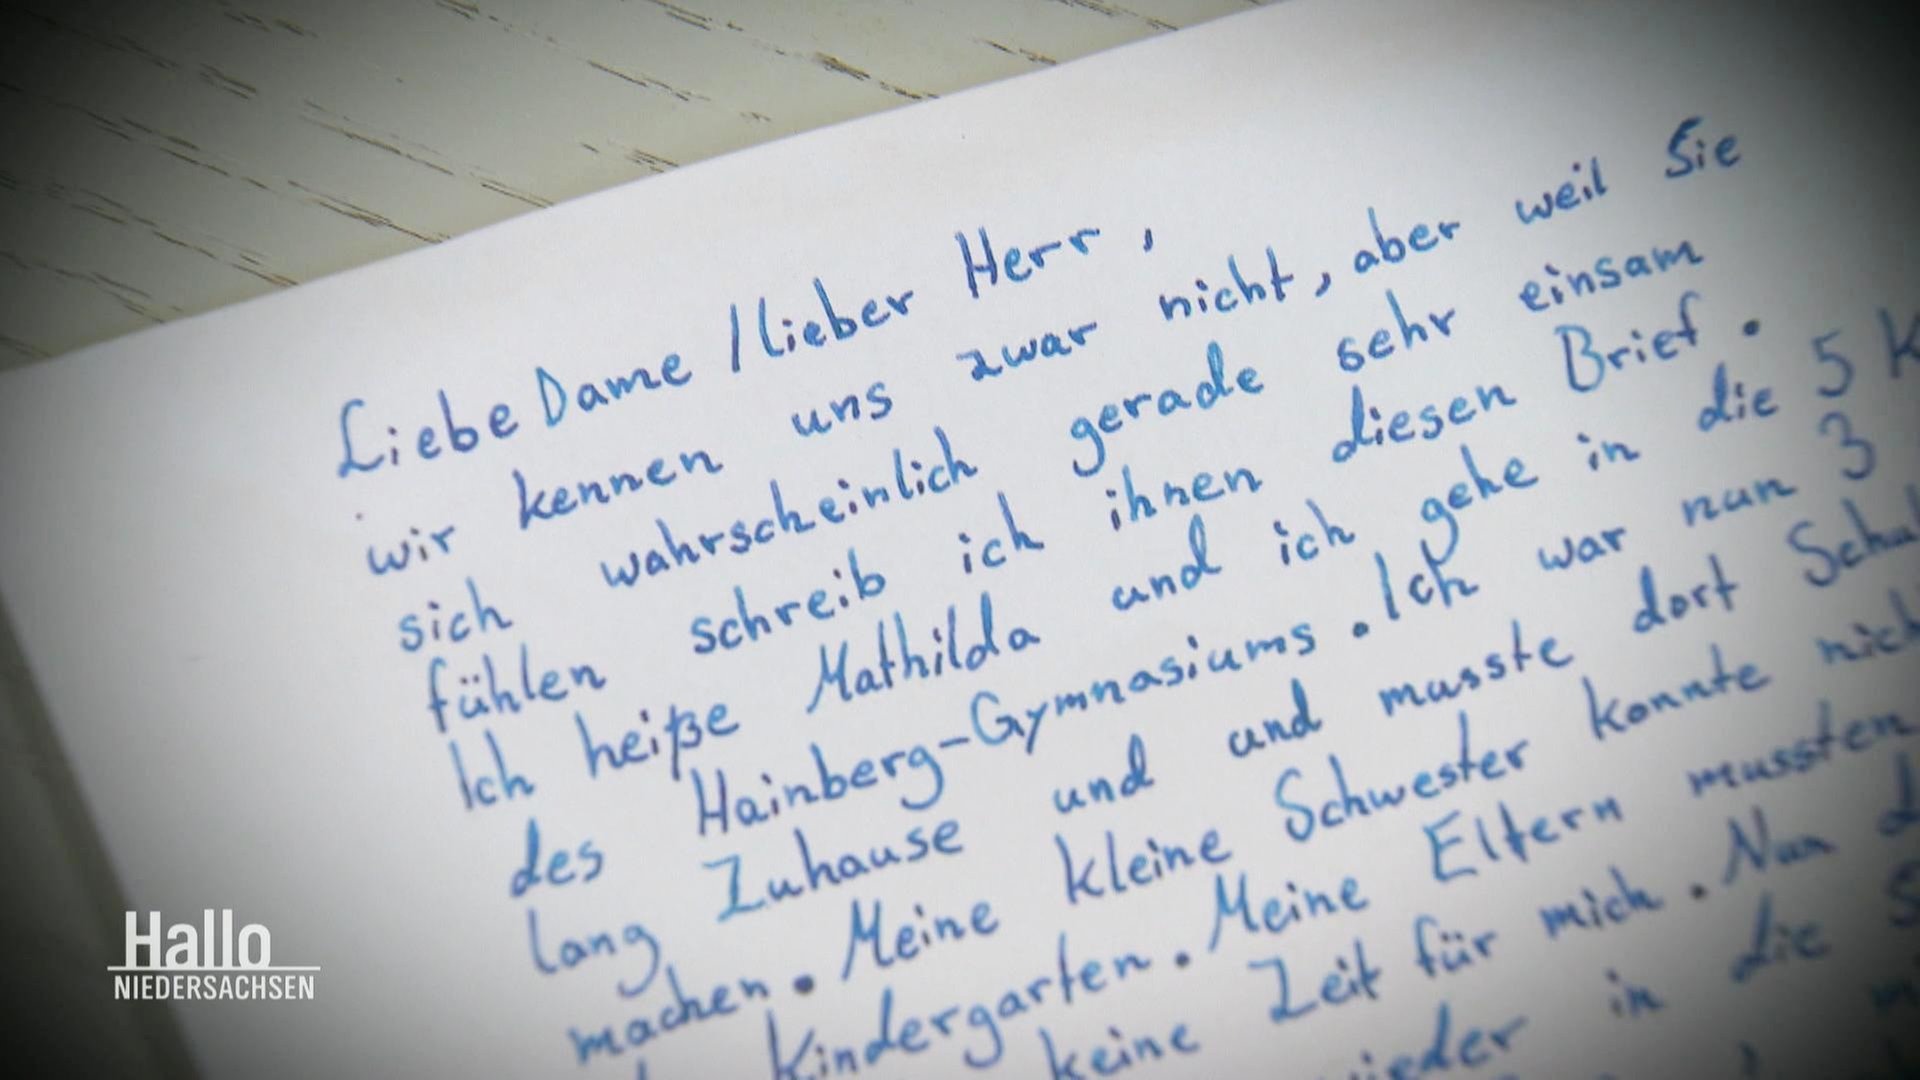 Liebe Dame / lieber Herr,
wir kennen uns zwar nicht, aber weil Sie
sich wahrscheinlich gerade sehr einsam
fühlen schreib ich ihnen diesen Brief.
Ich heiße Mathilda und ich gehe in die 5 K
des Hainberg-Gymnasiums. Ich war nun 3
lang Zuhause und und musste dort Schul
machen. Meine kleine Schwester konnte nich
Kindergarten. Meine Eltern mussten
keine Zeit für mich. Nun d
wieder in die S
Hallo
NIEDERSACHSEN